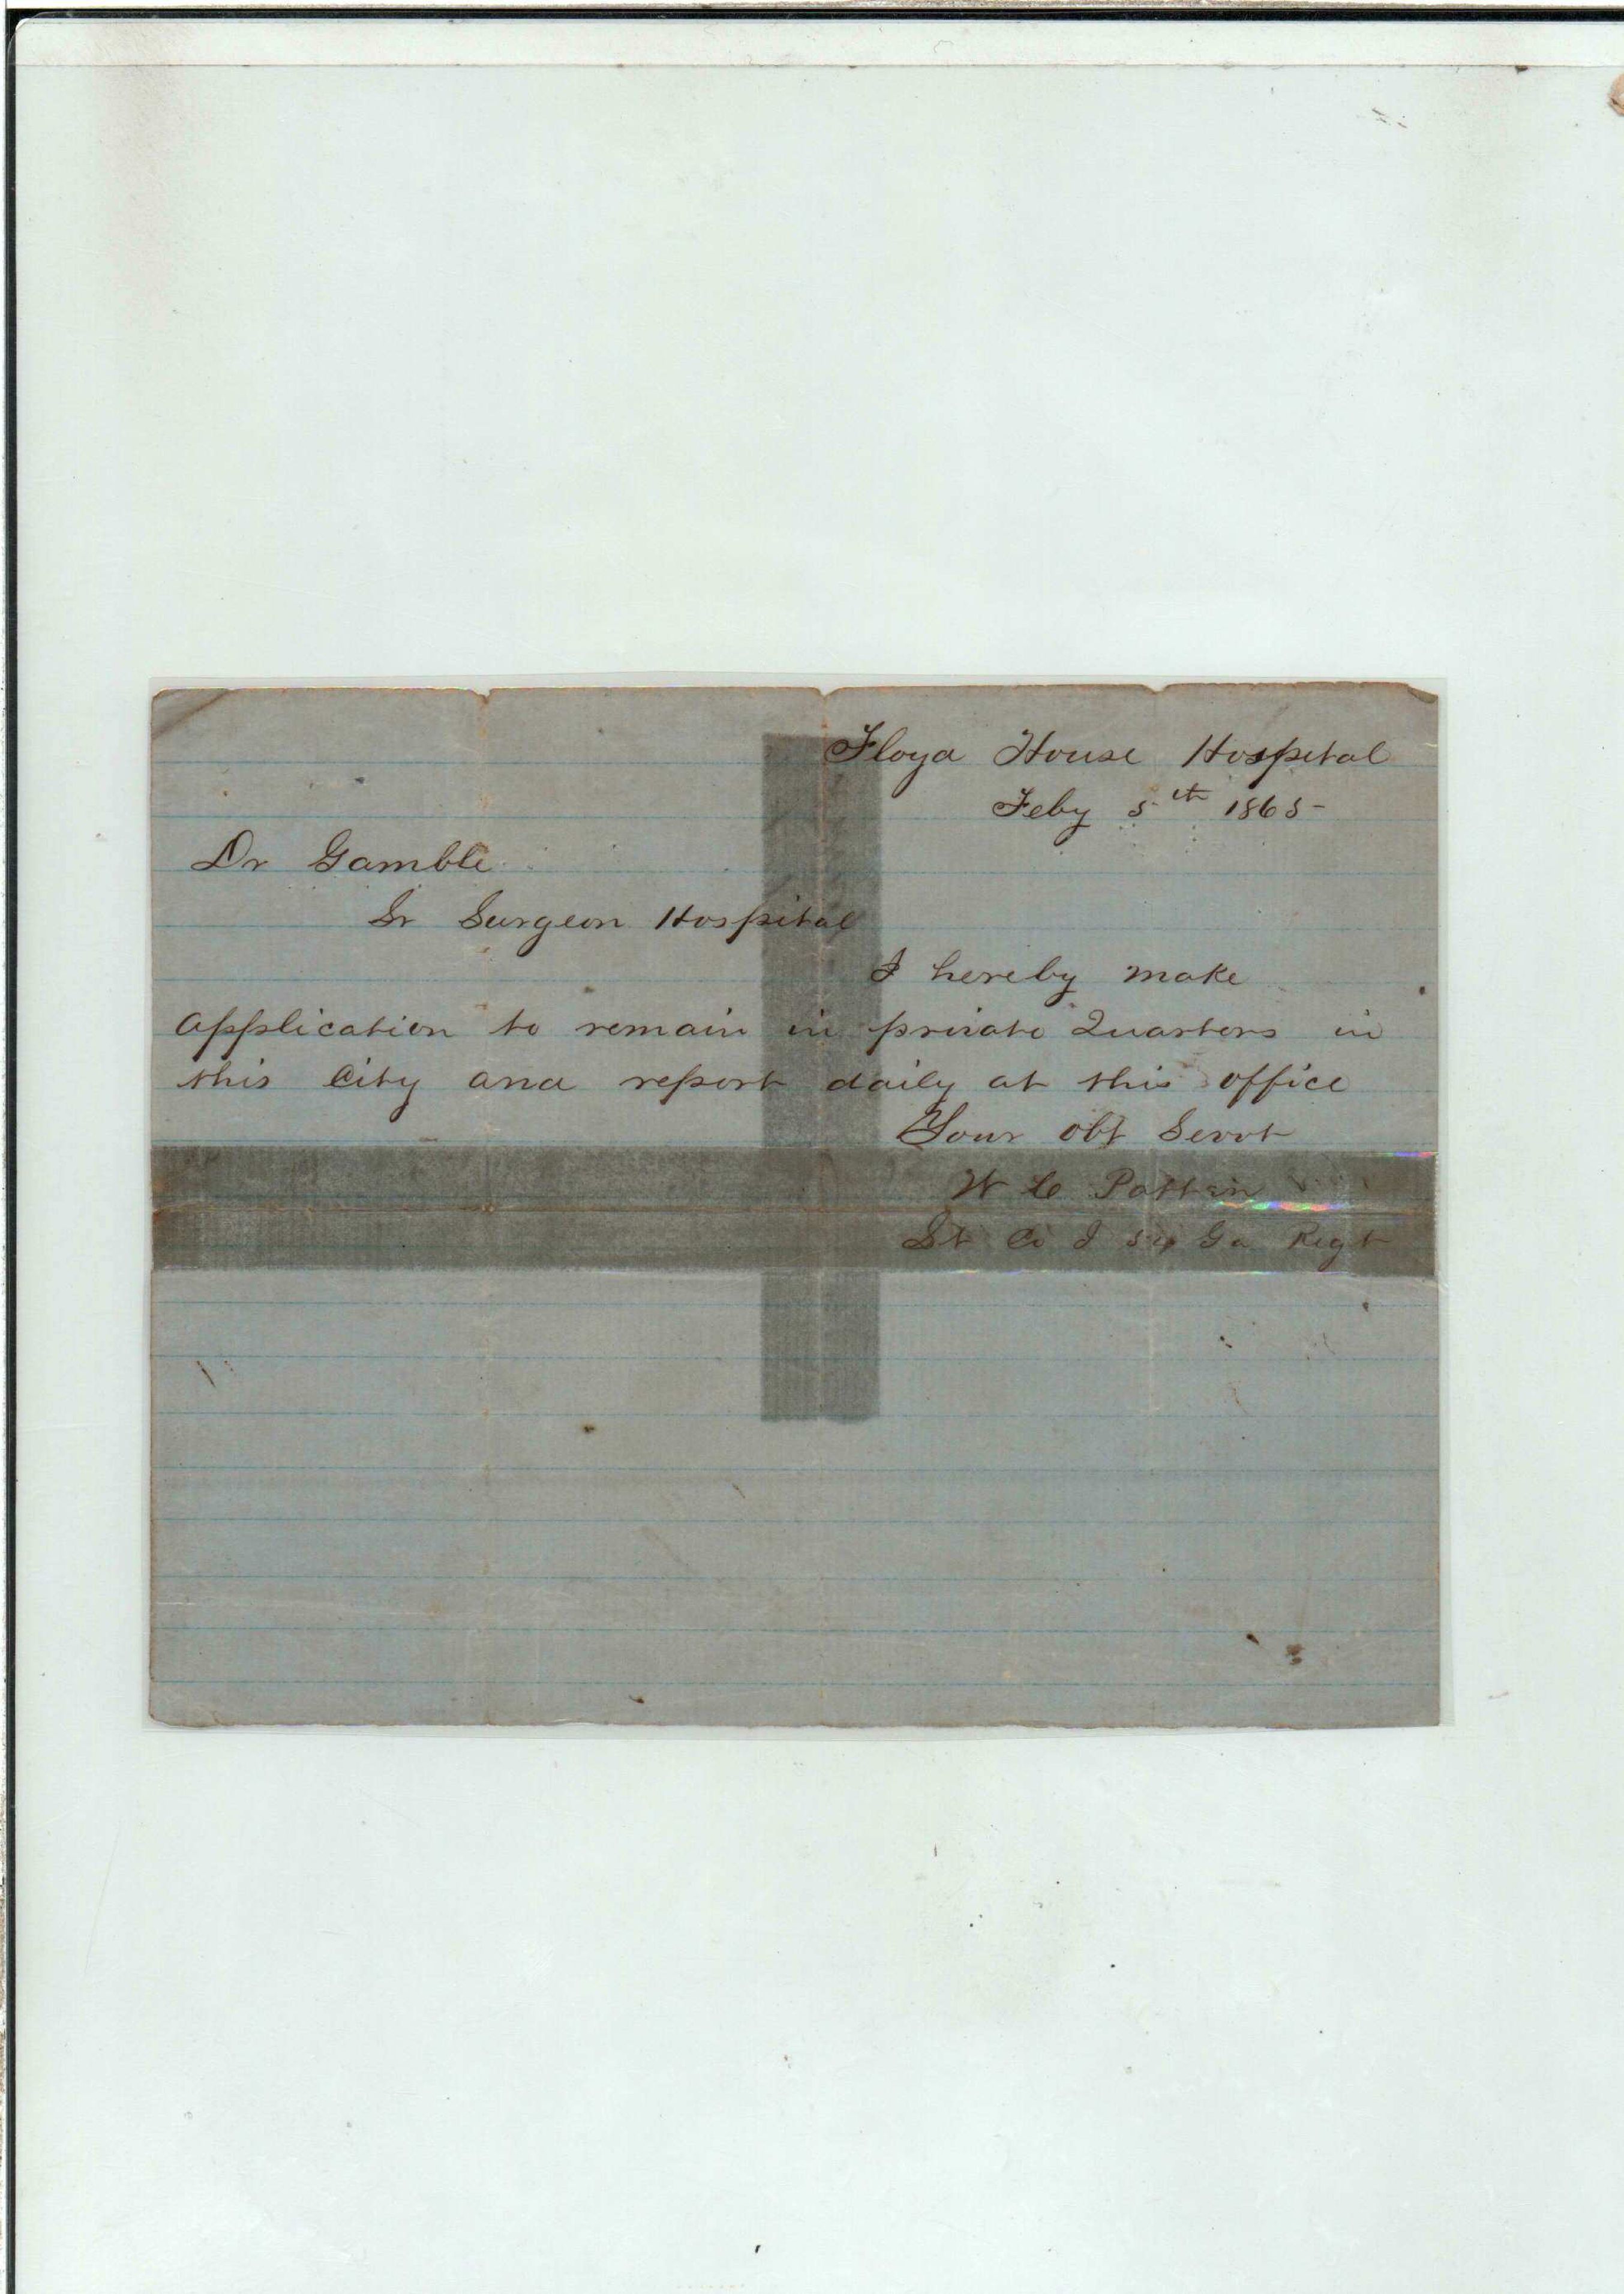 Floyd House Hospital
Feby 5th 1865
Dr Gamble
Sr Surgeon Hospital
I hereby make
application to remain in private Quarters in
this City and report daily at this office
Your obt Servt
W C Patten
Lt Co I 54 Ga Regt